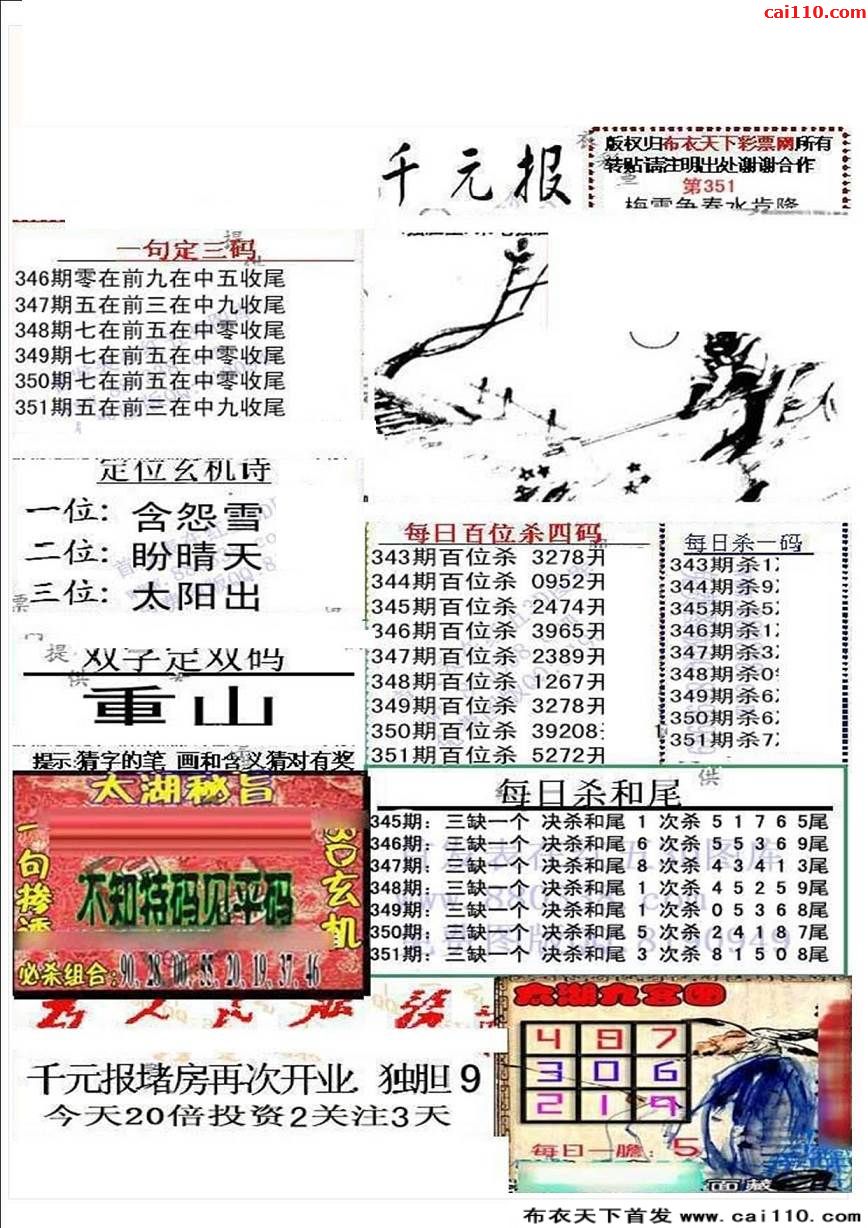 cai110.com
千元报
版权归布衣天下彩票网所有
转贴请注明出处谢谢合作
第351
梅雪争春水肯降
一句定三码
346期零在前九在中五收尾
347期五在前三在中九收尾
348期七在前五在中零收尾
349期七在前五在中零收尾
350期七在前五在中零收尾
351期五在前三在中九收尾
定位玄机诗
一位: 含怨雪
二位: 盼晴天
三位: 太阳出
每日百位杀四码
343期百位杀 3278开
344期百位杀 0952开
345期百位杀 2474开
346期百位杀 3965开
347期百位杀 2389开
348期百位杀 1267开
349期百位杀 3278开
350期百位杀 39208
351期百位杀 5272开
每日杀一码
343期杀1
344期杀9
345期杀5
346期杀1
347期杀3
348期杀0
349期杀6
350期杀6
351期杀7
双字定双码
重山
提示:猜字的笔 画和含义猜对有奖
太湖秘旨
不知特码见平码
必杀组合:90.28.00.55.20.19.37.46
每日杀和尾
345期: 三缺一个 决杀和尾 1 次杀 5 1 7 6 5尾
346期: 三缺一个 决杀和尾 6 次杀 5 5 3 6 9尾
347期: 三缺一个 决杀和尾 8 次杀 4 3 4 1 3尾
348期: 三缺一个 决杀和尾 1 次杀 4 5 2 5 9尾
349期: 三缺一个 决杀和尾 1 次杀 0 5 3 6 8尾
350期: 三缺一个 决杀和尾 5 次杀 2 4 1 8 7尾
351期: 三缺一个 决杀和尾 3 次杀 8 1 5 0 8尾
千元报堵房再次开业. 独胆 9
今天20倍投资2关注3天
太湖九宫图
4 9 7
3 0 6
2 1 9
每日一胆: 5
布衣天下首发 www.cai110.com